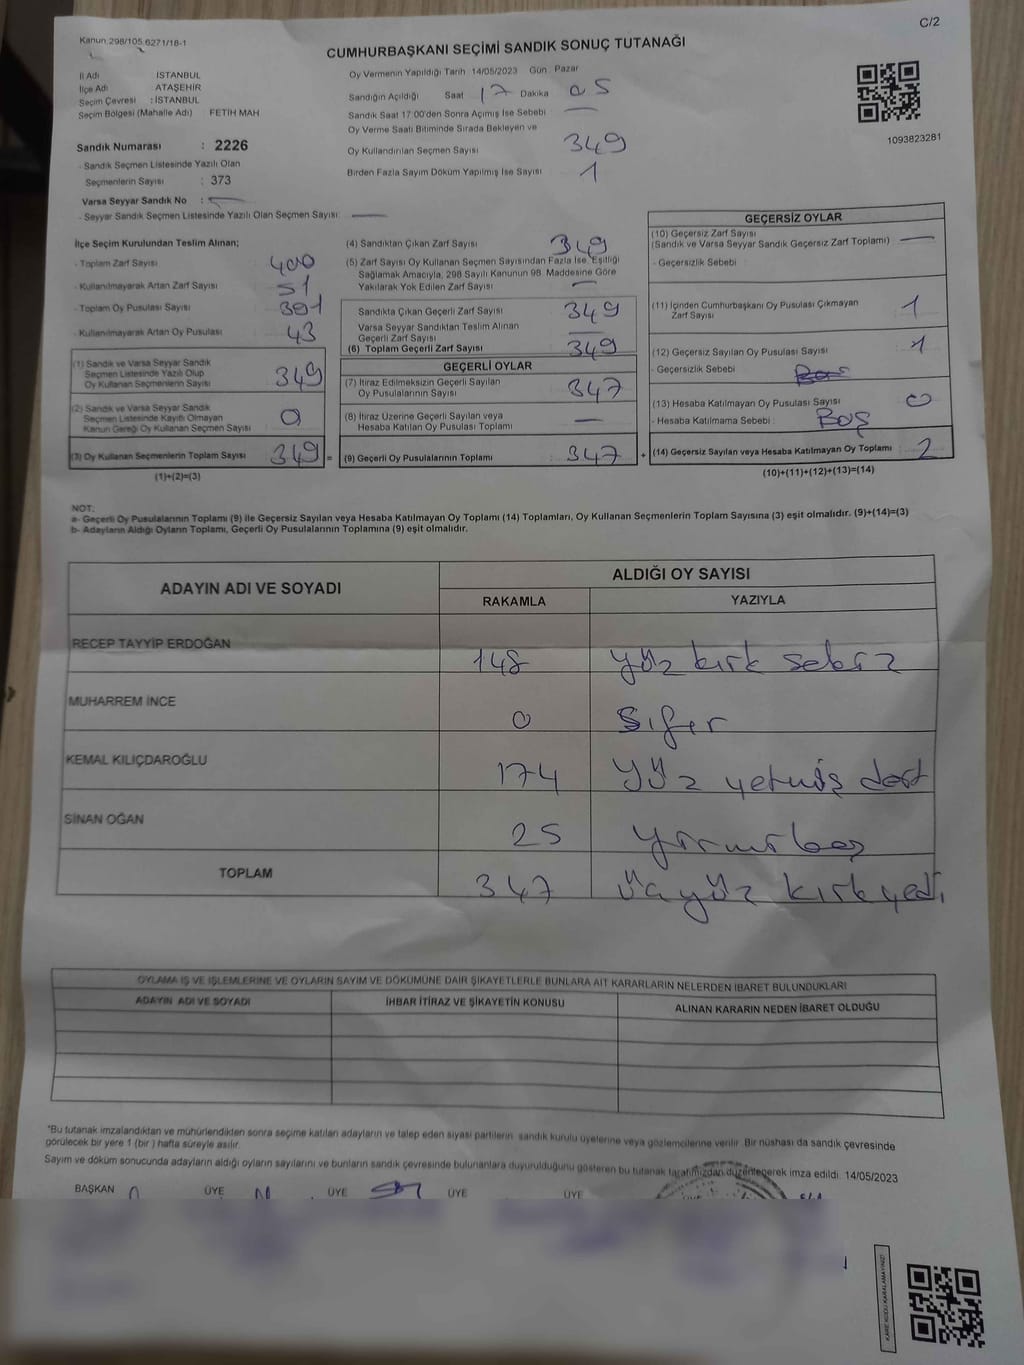 C/2
Kanun 298/105 6271/18-1
CUMHURBAŞKANI SEÇİMİ SANDIK SONUÇ TUTANAĞI
İl Adı İSTANBUL
İlçe Adı ATAŞEHİR
Seçim Çevresi : İSTANBUL
Seçim Bölgesi (Mahalle Adı) FETİH MAH
Sandık Numarası : 2226
- Sandık Seçmen Listesinde Yazılı Olan
Seçmenlerin Sayısı : 373
Varsa Seyyar Sandık No :
- Seyyar Sandık Seçmen Listesinde Yazılı Olan Seçmen Sayısı:
Oy Vermenin Yapıldığı Tarih 14/05/2023 Gün Pazar
Sandığın Açıldığı Saat 17 Dakika 05
Sandık Saat 17:00'den Sonra Açımış İse Sebebi
Oy Verme Saati Bitiminde Sırada Bekleyen ve
Oy Kullandırılan Seçmen Sayısı 349
Birden Fazla Sayım Döküm Yapılmış İse Sayısı 1
1093823281
İlçe Seçim Kurulundan Teslim Alınan;
- Toplam Zarf Sayısı 400
- Kullanılmayarak Artan Zarf Sayısı 51
- Toplam Oy Pusulası Sayısı 391
- Kullanılmayarak Artan Oy Pusulası 43
(1) Sandık ve Varsa Seyyar Sandık
Seçmen Listesinde Yazılı Olup
Oy Kullanan Seçmenlerin Sayısı 349
(2) Sandık ve Varsa Seyyar Sandık
Seçmen Listesinde Kayıtlı Olmayan
Kanun Gereği Oy Kullanan Seçmen Sayısı 0
(3) Oy Kullanan Seçmenlerin Toplam Sayısı 349 =
(1)+(2)=(3)
(4) Sandıktan Çıkan Zarf Sayısı 349
(5) Zarf Sayısı Oy Kullanan Seçmen Sayısından Fazla İse, Eşitliği
Sağlamak Amacıyla, 298 Sayılı Kanunun 98. Maddesine Göre
Yakılarak Yok Edilen Zarf Sayısı
Sandıkta Çıkan Geçerli Zarf Sayısı 349
Varsa Seyyar Sandıktan Teslim Alınan
Geçerli Zarf Sayısı
(6) Toplam Geçerli Zarf Sayısı 349
GEÇERLİ OYLAR
(7) İtiraz Edilmeksizin Geçerli Sayılan
Oy Pusulalarının Sayısı 347
(8) İtiraz Üzerine Geçerli Sayılan veya
Hesaba Katılan Oy Pusulası Toplamı
(9) Geçerli Oy Pusulalarının Toplamı : 347 +
GEÇERSİZ OYLAR
(10) Geçersiz Zarf Sayısı
(Sandık ve Varsa Seyyar Sandık Geçersiz Zarf Toplamı)
- Geçersizlik Sebebi
(11) İçinden Cumhurbaşkanı Oy Pusulası Çıkmayan
Zarf Sayısı 1
(12) Geçersiz Sayılan Oy Pusulası Sayısı 1
- Geçersizlik Sebebi
(13) Hesaba Katılmayan Oy Pusulası Sayısı 0
- Hesaba Katılmama Sebebi : Boş
(14) Geçersiz Sayılan veya Hesaba Katılmayan Oy Toplamı 2
(10)+(11)+(12)+(13)=(14)
NOT:
a- Geçerli Oy Pusulalarının Toplamı (9) ile Geçersiz Sayılan veya Hesaba Katılmayan Oy Toplamı (14) Toplamları, Oy Kullanan Seçmenlerin Toplam Sayısına (3) eşit olmalıdır. (9)+(14)=(3)
b- Adayların Aldığı Oyların Toplamı, Geçerli Oy Pusulalarının Toplamına (9) eşit olmalıdır.
ADAYIN ADI VE SOYADI ALDIĞI OY SAYISI
RAKAMLA YAZIYLA
RECEP TAYYİP ERDOĞAN 148 yüz kırk sekiz
MUHARREM İNCE 0 Sıfır
KEMAL KILIÇDAROĞLU 174 yüz yetmiş dört
SİNAN OĞAN 25 yirmi beş
TOPLAM 347 üçyüz kırkyedi
OYLAMA İŞ VE İŞLEMLERİNE VE OYLARIN SAYIM VE DÖKÜMÜNE DAİR ŞİKAYETLERLE BUNLARA AİT KARARLARIN NELERDEN İBARET BULUNDUKLARI
ADAYIN ADI VE SOYADI İHBAR İTİRAZ VE ŞİKAYETİN KONUSU ALINAN KARARIN NEDEN İBARET OLDUĞU
*Bu tutanak imzalandıktan ve mühürlendikten sonra seçime katılan adayların ve talep eden siyasi partilerin sandık kurulu üyelerine veya gözlemcilerine verilir. Bir nüshası da sandık çevresinde
görülecek bir yere 1 (bir ) hafta süreyle asılır.
Sayım ve döküm sonucunda adayların aldığı oyların sayılarını ve bunların sandık çevresinde bulunanlara duyurulduğunu gösteren bu tutanak tarafımızdan düzenlenerek imza edildi. 14/05/2023
BAŞKAN ÜYE ÜYE ÜYE ÜYE
KARE KODU KARALAMAYINIZ!